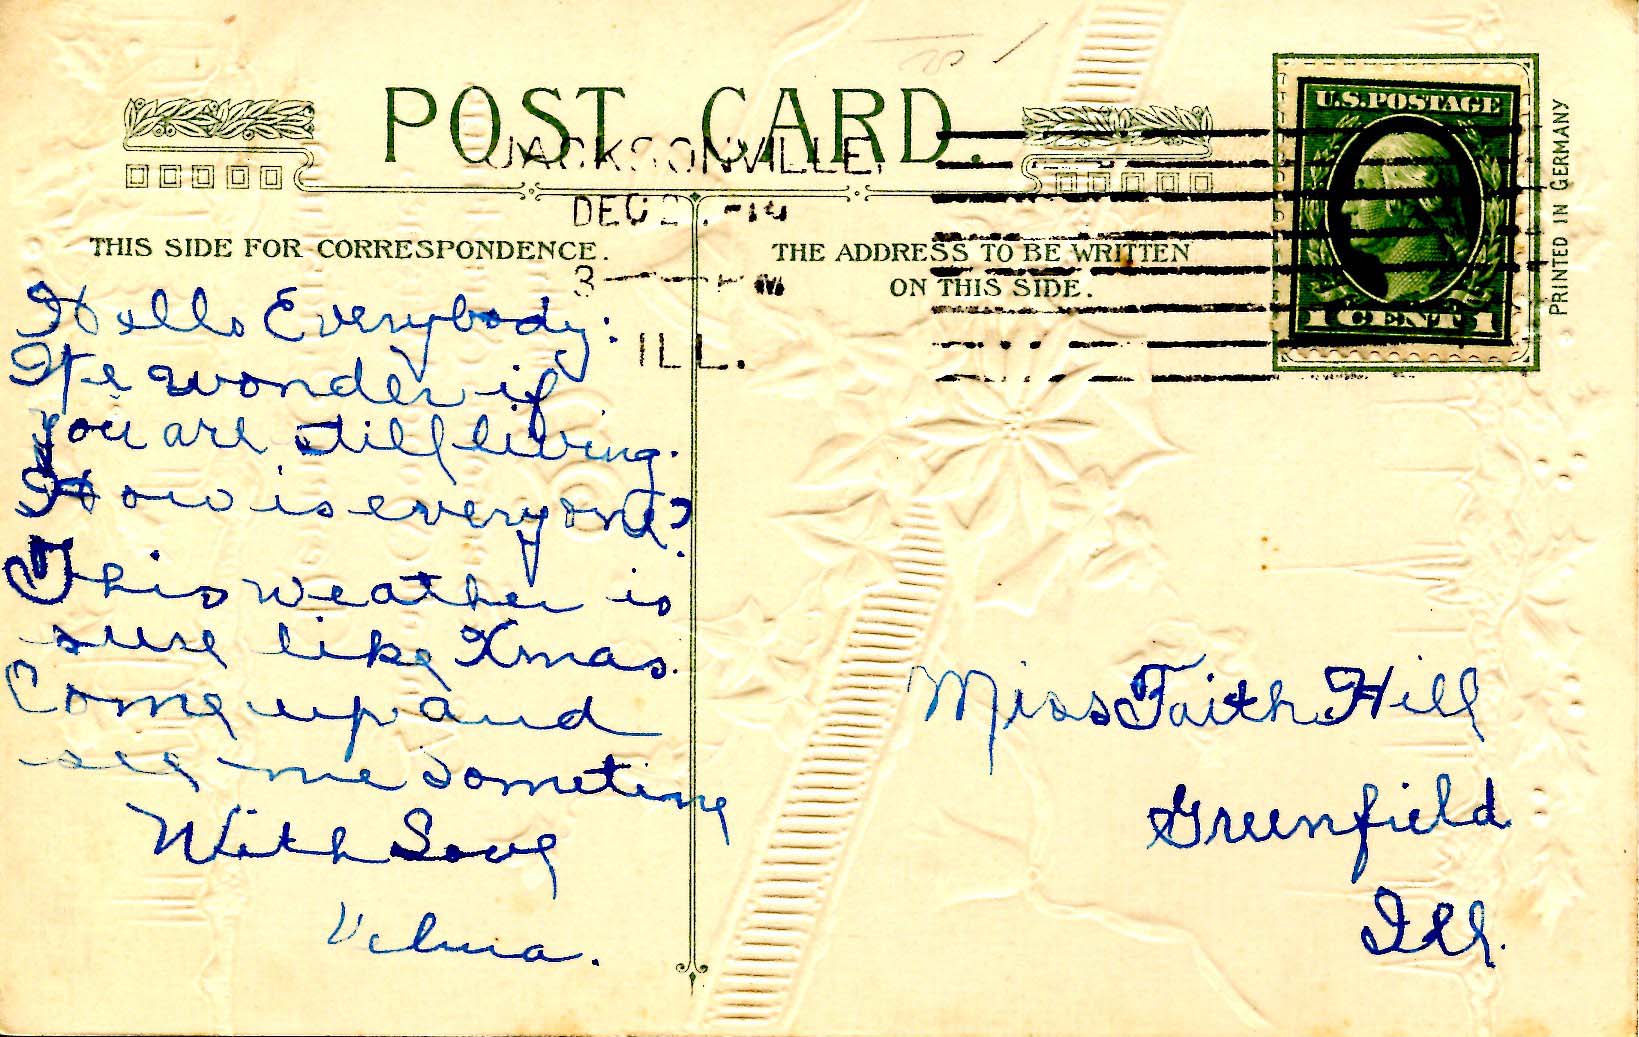 POST CARD.
JACKSONVILLE,
DEC 2 -14
3 - PM
ILL.
THIS SIDE FOR CORRESPONDENCE.
THE ADDRESS TO BE WRITTEN
ON THIS SIDE.
U.S. POSTAGE
1 CENT 1
PRINTED IN GERMANY
Hello Everybody:
We wonder if
you are still living.
How is everyone?
This weather is
sure like Xmas.
Come up and
see me sometime
With Love
Velma.
Miss Faith Hill
Greenfield
Ill.